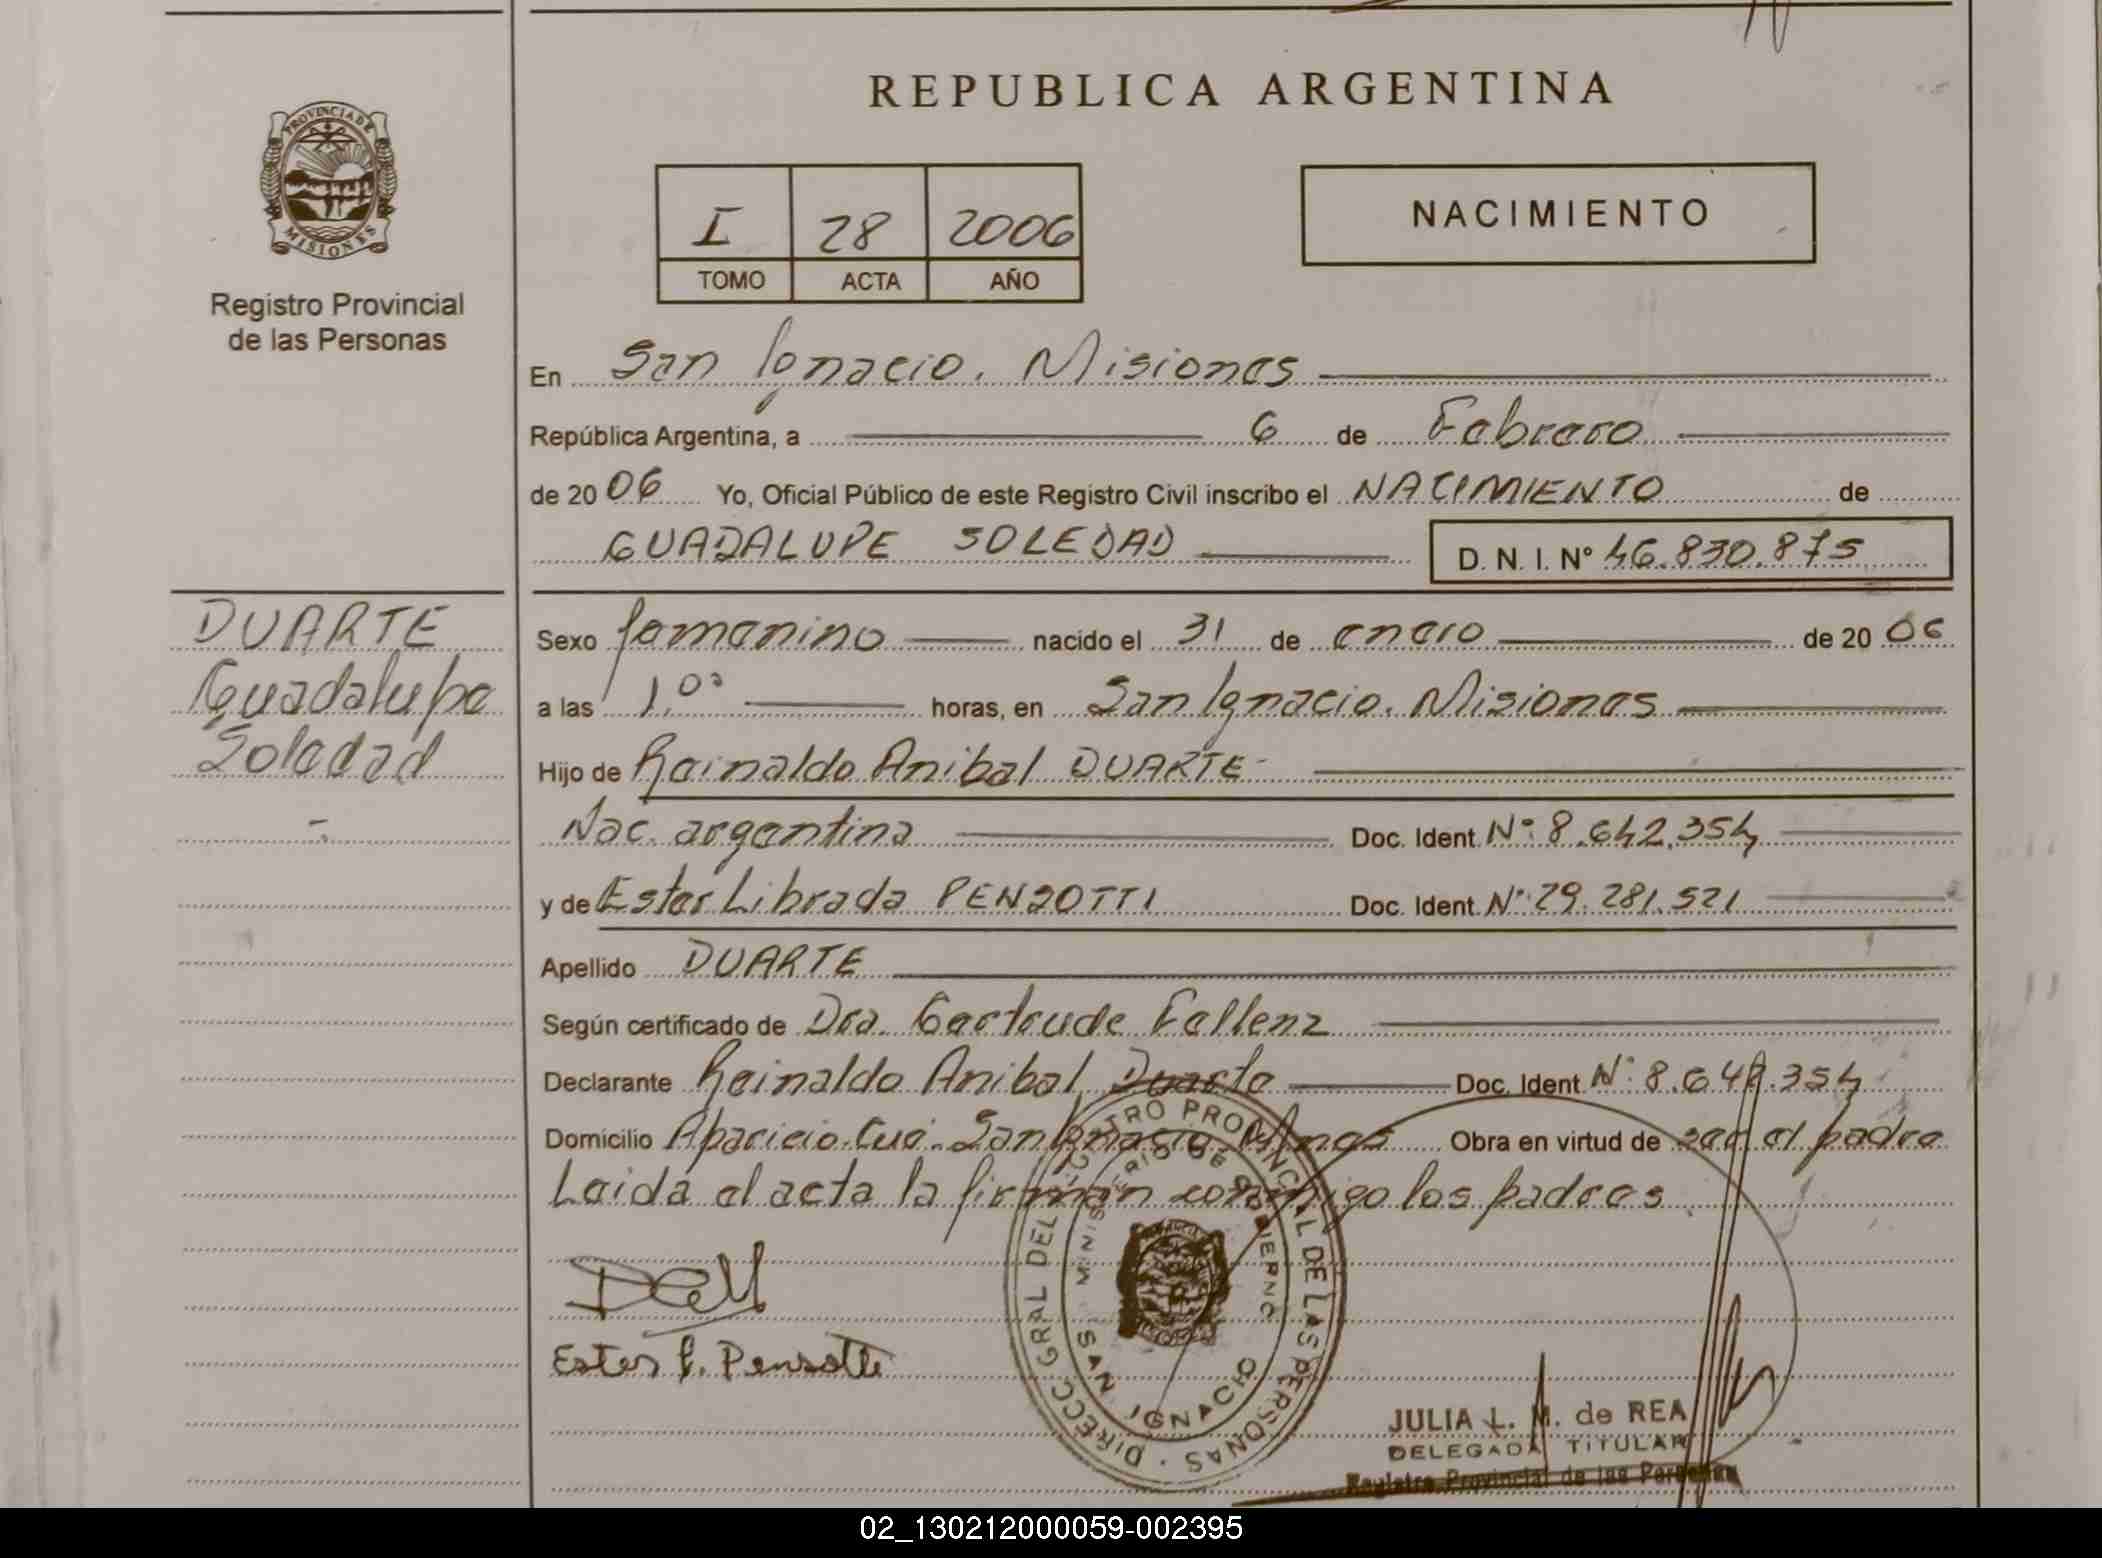 REPUBLICA ARGENTINA
PROVINCIA DE
MISIONES
Registro Provincial
de las Personas
I 28 2006
TOMO ACTA AÑO
NACIMIENTO
En San Ignacio. Misiones
República Argentina, a 6 de Febrero
de 20 06 Yo, Oficial Público de este Registro Civil inscribo el NACIMIENTO de
GUADALUPE SOLEDAD D. N. I. N° 46.830.875
DUARTE
Guadalupe
Soledad
Sexo femenino nacido el 31 de enero de 20 06
a las 1.°° horas, en San Ignacio. Misiones
Hijo de Reinaldo Anibal DUARTE
Nac. argentina Doc. Ident. N° 8.642.354
y de Ester Librada PENSOTTI Doc. Ident. N° 29.281.521
Apellido DUARTE
Según certificado de Dra. Gertrude Fellenz
Declarante Reinaldo Anibal Duarte Doc. Ident. N° 8.642.354
Domicilio Aparicio Cué. San Ignacio Mnes Obra en virtud de ser el padre
Leida el acta la firman conmigo los padres
Ester L. Pensotti
DIRECC GRAL DEL REGISTRO PROVINCIAL DE LAS PERSONAS
MINISTERIO DE GOBIERNO
SAN IGNACIO
JULIA L. M. de REA
DELEGADA TITULAR
Registro Provincial de las Personas
02_130212000059-002395